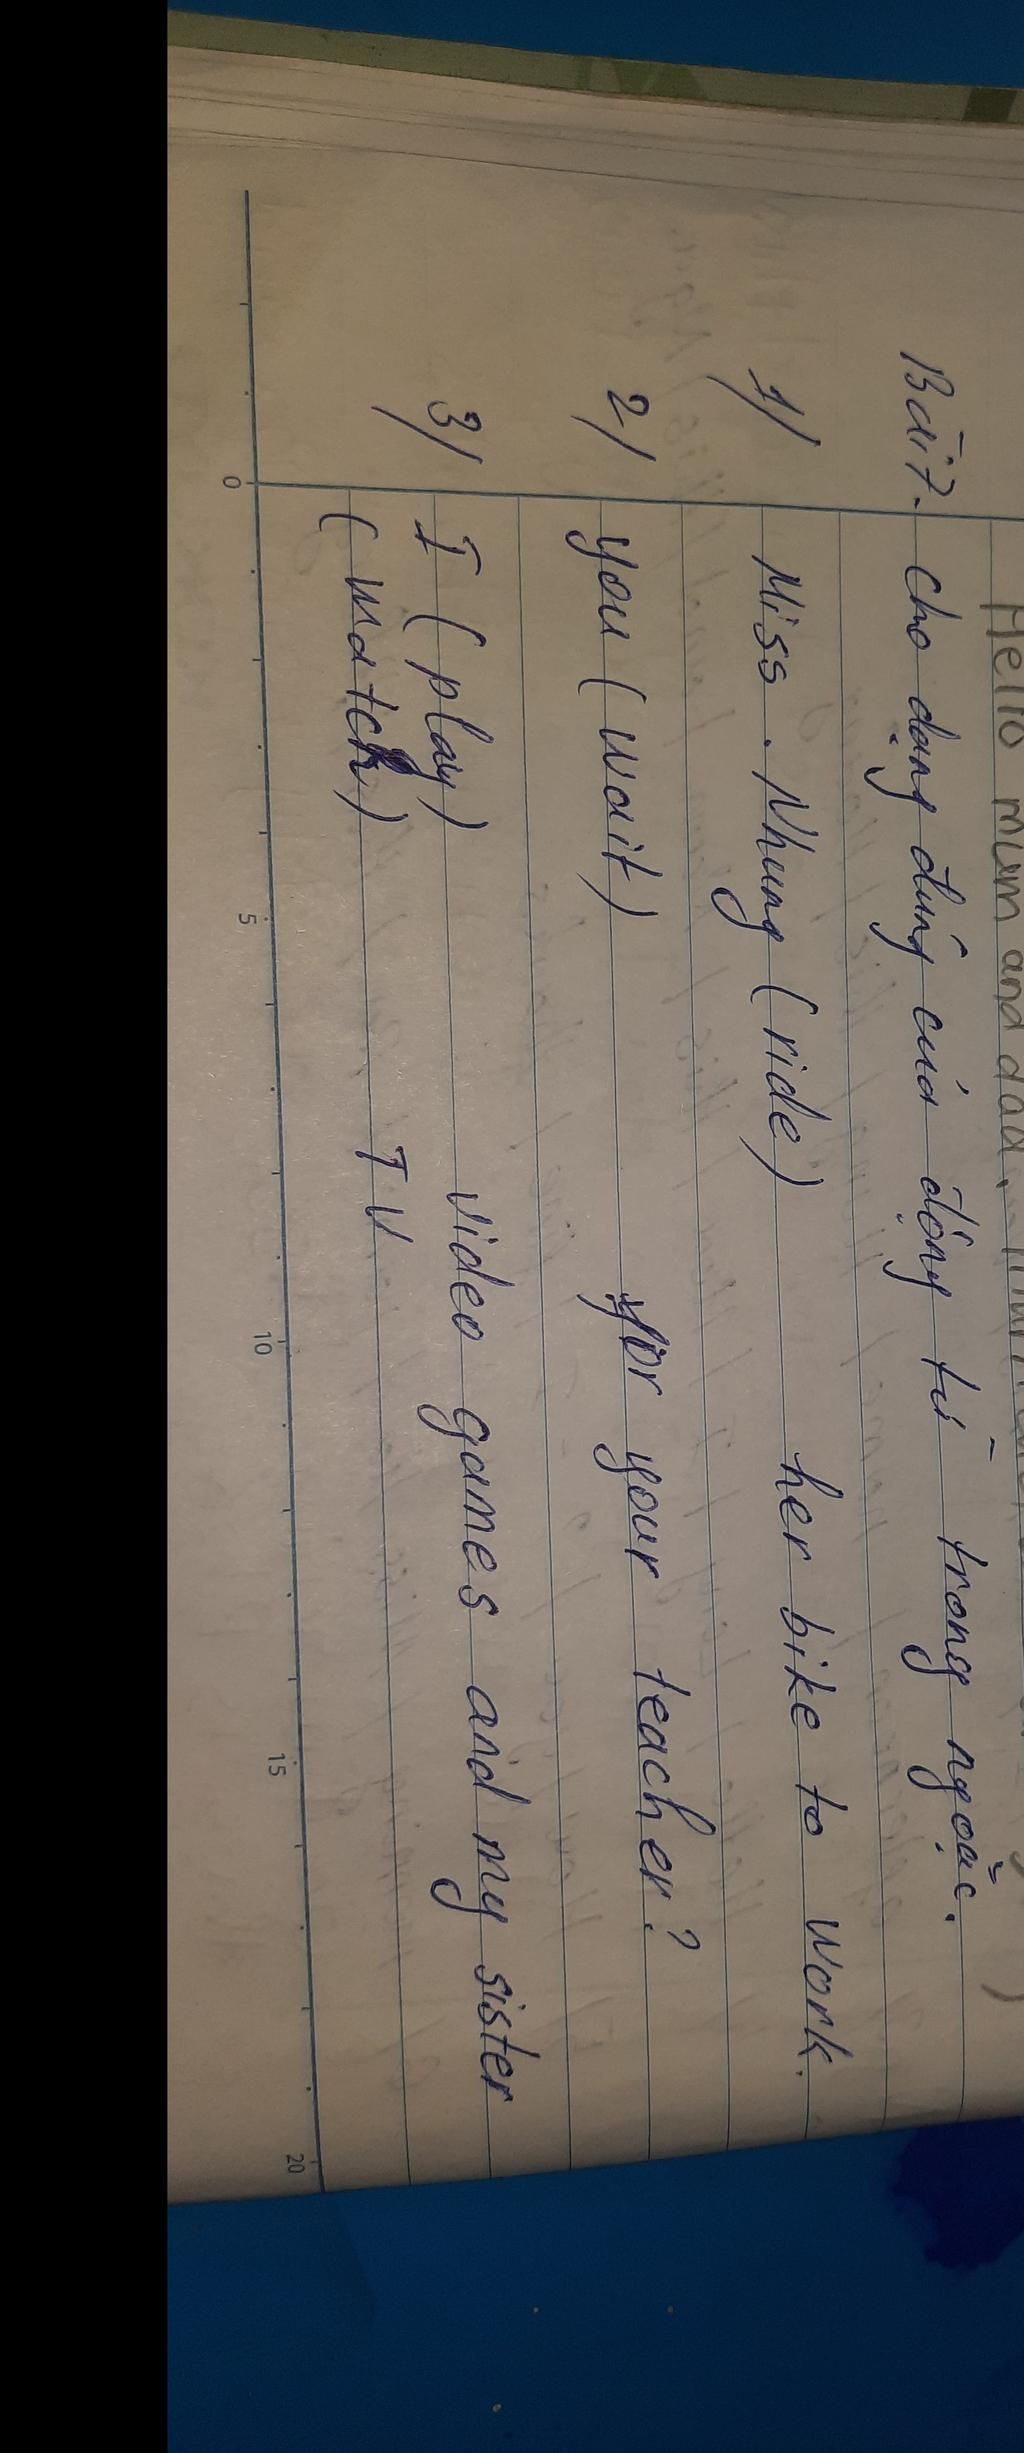 Hello mum and dad.
Bài 7. Cho dạng đúng của động từ trong ngoặc.
1/ Miss. Nhung (ride) her bike to work.
2/ you (wait) for your teacher?
3/ I (play) video games and my sister
(watch) TV
0 5 10 15 20